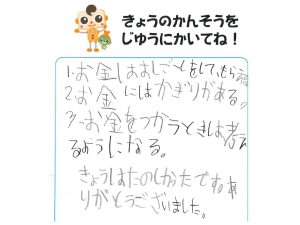 きょうのかんそうを
じゆうにかいてね！
1.お金はおしごとをして、もらう
2.お金にはかぎりがある。
3.お金をつかうときは考え
るようになる。
きょうはたのしかったです。あ
りがとうございました。